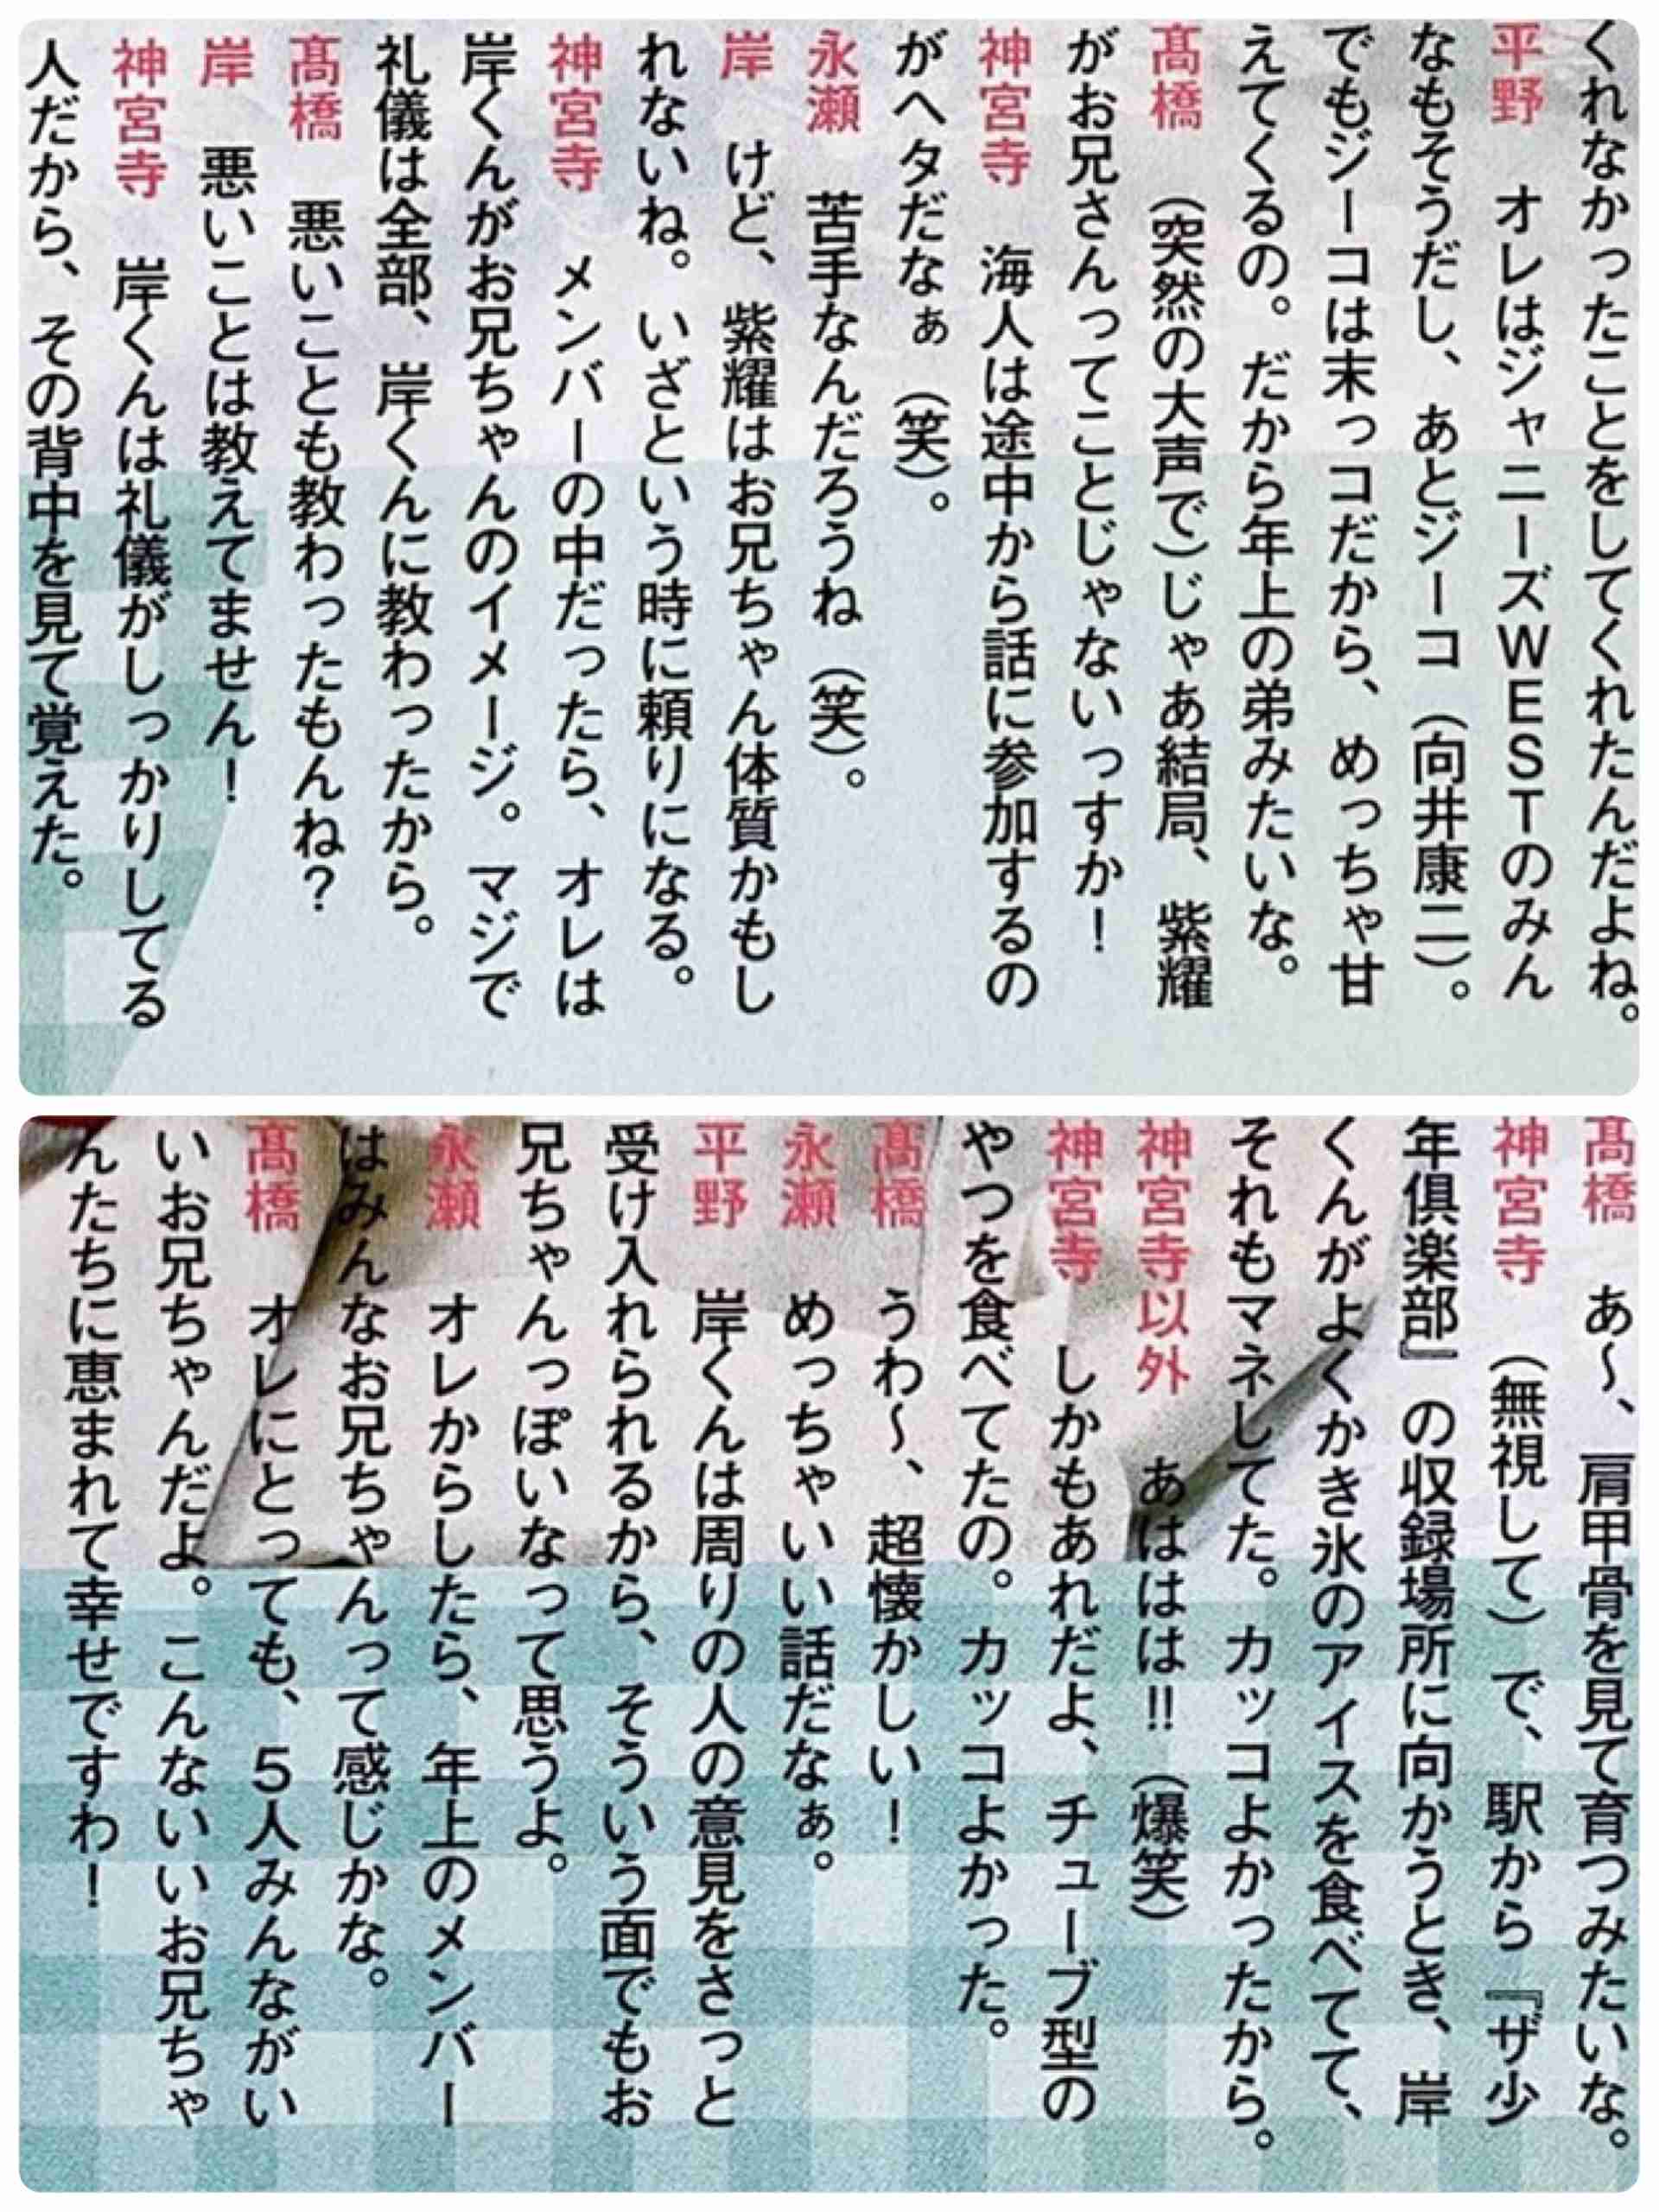 くれなかったことをしてくれたんだよね。
平野　オレはジャニーズWESTのみん
なもそうだし、あとジーコ（向井康二）。
でもジーコは末っコだから、めっちゃ甘
えてくるの。だから年上の弟みたいな。
髙橋　（突然の大声で）じゃあ結局、紫耀
がお兄さんってことじゃないっすか！
神宮寺　海人は途中から話に参加するの
がヘタだなぁ（笑）。
永瀬　苦手なんだろうね（笑）。
岸　けど、紫耀はお兄ちゃん体質かもし
れないね。いざという時に頼りになる。
神宮寺　メンバーの中だったら、オレは
岸くんがお兄ちゃんのイメージ。マジで
礼儀は全部、岸くんに教わったから。
髙橋　悪いことも教わったもんね？
岸　悪いことは教えてません！
神宮寺　岸くんは礼儀がしっかりしてる
人だから、その背中を見て覚えた。
髙橋　あ〜、肩甲骨を見て育つみたいな。
神宮寺　（無視して）で、駅から『ザ少
年倶楽部』の収録場所に向かうとき、岸
くんがよくかき氷のアイスを食べてて、
それもマネしてた。カッコよかったから。
神宮寺以外　あははは!!（爆笑）
神宮寺　しかもあれだよ、チューブ型の
やつを食べてたの。カッコよかった。
髙橋　うわ〜、超懐かしい！
永瀬　めっちゃいい話だなぁ。
平野　岸くんは周りの人の意見をさっと
受け入れられるから、そういう面でもお
兄ちゃんっぽいなって思うよ。
永瀬　オレからしたら、年上のメンバー
はみんなお兄ちゃんって感じかな。
髙橋　オレにとっても、5人みんながい
いお兄ちゃんだよ。こんないいお兄ちゃ
んたちに恵まれて幸せですわ！